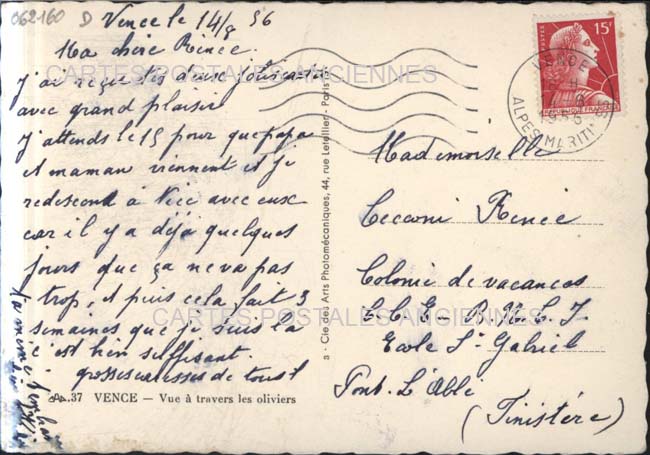 062160 D Vence le 14/8 56
Ma chère Renée.
J'ai reçue tes deux jolies cartes
avec grand plaisir
J'attends le 15 pour que papa
et maman viennent et je
redescend à Nice avec eux
car il y a déjà quelques
jours que ça ne va pas
trop, et puis cela fait 3
semaines que je suis la
c'est bien suffisant.
grosses caresses de tous
37 VENCE — Vue à travers les oliviers
3 - Cie des Arts Photomécaniques, 44, rue Letellier - Paris
15F
POSTES
RÉPUBLIQUE FRANÇAISE
VENCE
ALPES MARITIMES
Mademoiselle
Cecconi Renée
Colonie de vacances
Ecole St Gabriel
Pont-L'Abbé
(Finistère)
CARTES POSTALES ANCIENNES
CARTES POSTALES ANCIENNES